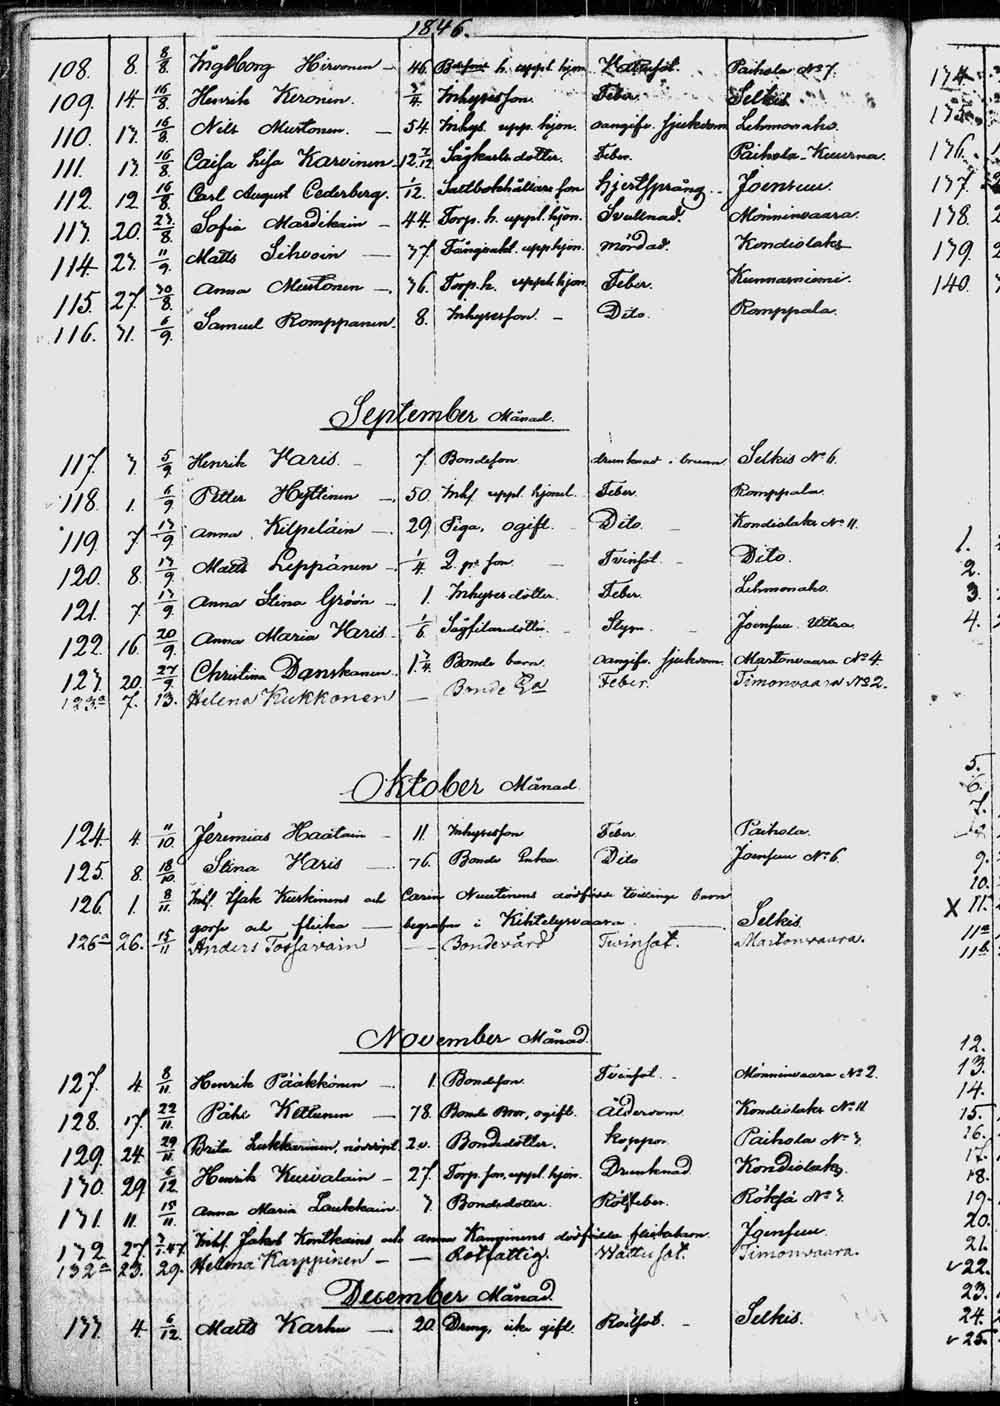 1846.
108. 8. 8/8. Ingeborg Hirvonen — 46. h. uppt. hjon Paihola No 7.
109. 14 16/8. Henrik Keronen. 3/4. Inhyresson Feber Selkis
110. 13. 16/8. Nils Mustonen. — 54. Inhys. upp. hjon. oangifv. sjukdom Lehmonaho.
111. 13. 16/8. Caisa Lisa Karvinen 12 7/12. Sågkarls dotter. Feber. Paihola-Kuurna
112. 12 16/8. Carl August Cederberg. 1/12. Saltbokhållare son hjertsprång. Joensuu.
113. 20. 23/8. Sofia Mardikain — 44. Torp. h. uppt. hjon. Svullnad. Mönninvaara.
114. 23. 11/9. Matts Sihvoin — 37. upp. hjon. mördad. Kondiolaks
115. 27. 30/8. Anna Mustonen — 76. Torp. h. uppt. hjon. Feber. Kunnasniemi.
116. 31. 6/9. Samuel Romppanen. 8. Inhyresson. — Dito. Romppala.
September Månad.
117. 3. 5/9. Henrik Karis — 7. Bondeson drunknad i brunn Selkis No 6.
118. 1. 6/9. Petter Hyttinen — 50. Inh. uppt. hjonel. Feber. Romppala.
119. 7 13/9. Anna Kilpeläin — 29. Piga, ogift. — Dito. — Kondiolaks No 11.
120. 8. 13/9. Matts Leppänen — 1/4. D. pr. son. — Tvinsot. — Dito.
121. 7 13/9. Anna Stina Gröön — 1. Inhyresdotter. Feber. Lehmonaho.
122. 16. 20/9. Anna Maria Karis — 1/6. Sågfilaredotter. — Slag. — Joensuu Utra.
123. 20. 27/9 Christina Danskanen. 1 3/4. Bonde barn. oangifv. sjukdom. Martonvaara No 4.
123a 7. 13. Helena Kukkonen — Bonde Ea Feber. Timonvaara No 2.
Oktober Månad
124. 4. 11/10. Jeremias Haatain — 11. Inhyresson Feber Paihola.
125. 8. 18/10. Stina Karis — 76. Bonde Enka. Dito Joensuu No 6.
126. 1. 8/11. Inh. Isak Kuskinens och Carin Nuutinens dödfödde tvillinge barn
gosse och flicka — begrafne i Kihtelysvaara — Selkis
126a 26. 15/11 Anders Torsavain — — Bondevärd Tvinsot. Martonvaara.
November Månad.
127. 4. 8/11. Henrik Pääkkönen — 1. Bondeson. Tvinsot. — Mönninvaara No 2.
128. 17. 22/11. Påhl Kettunen — 78. Bonde Bror, ogift. Ålderdom. Kondiolaks No 11
129. 24. 29/11. Brita Lukkarinen, nöddöpt 2v. Bondedotter. Koppor. Paihola No 3.
130. 29 6/12. Henrik Kuivalain — 27. Torp. son, uppt. hjon. Drunknad Kondiolaks.
131. 11. 15/11. Anna Maria Laukkain. 3. Bondedotter. Rötfeber. Röksä No 3.
132 27. 3/1.47. Inh. Jakob Kontkains och Annas Kanginens dödfödda flickebarn. Joensuu.
132a 23. 29. Helena Karppinen — — Rotfattig. Wattusot. Timonvaara.
December Månad.
133. 4. 6/12. Matts Karhu — 20. Dreng, icke gift. Rötsot. — Selkis.
134.
135.
136.
137.
138. 2
139. 2
140.
1.
2.
3.
4.
5.
6.
7.
9.
10.
X 11.
11a
11b
12.
13.
14.
15.
16.
17.
18.
19.
20.
21.
v 22.
23.
24.
v 25.